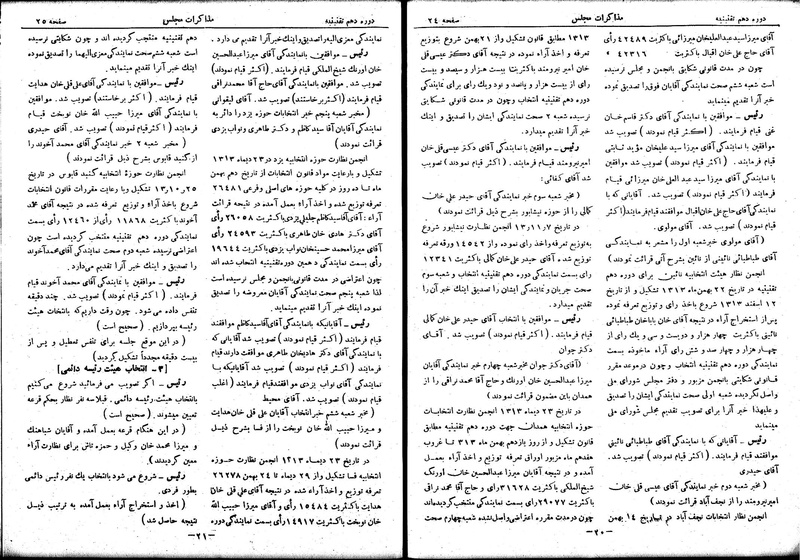 دوره دهم تقنینیه
مذاکرات مجلس
صفحه ۲۴
آقای میرزا سید عبدالعلیخان میرزائی باکثریت ۴۲۴۸۹ رأی
آقای حاج علی خان اقبال باکثریت ۴۲۳۱۶ »
چون در مدت قانونی شکایتی بانجمن و مجلس نرسیده
است شعبه ششم صحت نمایندگی آقایان فوق را تصدیق نموده
خبر آنرا تقدیم مینماید
رئیس - موافقین با نمایندگی آقای دکتر قاسم خان
غنی قیام فرمایند . ( اکثر قیام نمودند ) تصویب شد
موافقین با نمایندگی آقای میرزا سید علیخان مؤید ثابتی
قیام فرمایند . ( اکثر قیام نمودند ) تصویب شد .
موافقین با نمایندگی آقای میرزا سید عبدالعلی خان میرزائی قیام
فرمایند ( اکثر قیام نمودند ) تصویب شد . آقایانی که با
نمایندگی آقای حاج علی خان اقبال موافقند قیام فرمایند (اکثر
قیام نمودند ) تصویب شد . آقای مولوی .
( آقای مولوی خبر شعبه اول را مشعر به نمایندگی
آقای طباطبائی نائینی از نائین بشرح آتی قرائت نمودند )
انجمن نظار هیئت انتخابیه نائین برای دوره دهم
تقنینیه در تاریخ ۲۲ بهمن ماه ۱۳۱۳ تشکیل و از تاریخ
۱۲ اسفند ۱۳۱۳ شروع باخذ رای و توزیع تعرفه نموده
پس از استخراج آراء در نتیجه آقای خان باباخان طباطبائی
نائینی باکثریت چهار هزار و دویست و سی و یک رای از
چهار هزار و چهار صد و شش رای آراء ماخوذه بسمت
نمایندگی دوره دهم تقنینیه انتخاب و چون در موعد مقرر
قانونی شکایتی بانجمن مزبور و دفتر مجلس شورای ملی
واصل نگردیده شعبه اولی صحت نمایندگی ایشان را تصدیق
و علیهذا خبر آنرا برای تصویب تقدیم مجلس شورای ملی
مینماید
رئیس - آقایانی که با نمایندگی آقای طباطبائی نائینی
موافقند قیام فرمایند . ( اکثر قیام نمودند ) تصویب شد .
آقای حیدری
( مخبر شعبه دوم خبر نمایندگی آقای عیسی قلی خان
امیر نیرومند را از نجف آباد قرائت نمودند )
انجمن نظار انتخابات نجف آباد در تاریخ ۱۴ بهمن
۱۳۱۳ مطابق قانون تشکیل و از ۲۱ بهمن شروع بتوزیع
تعرفه و اخذ آراء نموده در نتیجه آقای دکتر عیسی قلی
خان امیر نیرومند باکثریت بیست هزار و سیصد و بیست
رای از بیست هزار و پانصد و نود و یک رای برای نمایندگی
دوره دهم تقنینیه انتخاب و چون در مدت قانونی شکایتی
نرسیده شعبه ۲ صحت نمایندگی ایشان را تصدیق و اینک
خبر آنرا تقدیم میدارد.
رئیس - موافقین با نمایندگی آقای دکتر عیسی قلی خان
امیر نیرومند قیام فرمایند . ( اکثر قیام نمودند ) تصویب
شد آقای کفائی:
(مخبر شعبه سوم خبر نمایندگی آقای حیدر علی خان
کمالی را از حوزه نیشابور بشرح ذیل قرائت نمودند)
در تاریخ ۱۳،۱۱،۷ انجمن نظارت نیشابور شروع
به توزیع تعرفه و اخذ رای نموده و از ۱۴۵۴۲ ورقه تعرفه
توزیع شده آقای حیدر علی خان کمالی باکثریت ۱۲۳۴۱
رأی بسمت نمایندگی دوره دهم تقنینیه انتخاب و شعبه سوم
صحت جریان و نمایندگی ایشان را تصدیق اینک خبر آنرا
تقدیم میدارد.
رئیس - موافقین با انتخاب آقای حیدر علی خان کمالی
قیام فرمایند . ( اکثر قیام نمودند ) تصویب شد . آقای
دکتر جوان
(آقای دکتر جوان مخبر شعبه چهارم خبر نمایندگی آقایان
میرزا عبدالحسین خان اورنگ و حاج آقا محمد نراقی را از
همدان باین مضمون قرائت نمودند )
در تاریخ ۲۳ دیماه ۱۳۱۳ انجمن نظارت انتخابات
حوزه انتخابیه همدان جهت دوره دهم تقنینیه مطابق
قانون تشکیل و از روز یازدهم بهمن ماه ۳۱۳ تا غروب
هفدهم ماه مزبور اوراق تعرفه توزیع و اخذ آراء بعمل
آمده و در نتیجه آقایان میرزا عبدالحسین خان اورنگ
شیخ الملکی باکثریت ۳۱۶۲۸ رای و حاج آقا محمد نراقی
باکثریت ۲۹۰۷۷ رأی بسمت نمایندگی منتخب گردیده اند
چون در مدت مقرره اعتراضی واصل نشده شعبه چهارم صحت
— ۲۰ —
دوره دهم تقنینیه
مذاکرات مجلس
صفحه ۲۵
نمایندگی معزی الیه را تصدیق و اینک خبر آنرا تقدیم می دارد .
رئیس - موافقین با نمایندگی آقای میرزا عبدالحسین
خان اورنگ شیخ الملکی قیام فرمایند . ( اکثر قیام نمودند )
تصویب شد . موافقین با نمایندگی آقای حاج آقا محمد نراقی
قیام فرمایند ( اکثر برخاستند) تصویب شد . آقای لیقوانی
( مخبر شعبه پنجم خبر انتخابات حوزه یزد را دائر به
نمایندگی آقایان آقا سید کاظم و دکتر طاهری و نواب یزدی
قرائت نمودند)
انجمن نظارت حوزه انتخابیه یزد در ۲۳ دیماه ۱۳۱۳
تشکیل و بارعایت مواد قانون انتخابات از تاریخ دهم بهمن
ماه تا ده روز در کلیه حوزه های اصلی و فرعی ۲۶۴۸۱
تعرفه توزیع شده و اخذ آراء بعمل آمده در نتیجه قرائت
آراء : آقای آقا سید کاظم جلیلی یزدی باکثریت ۲۶۰۵۸ رأی
آقای دکتر هادی خان طاهری باکثریت ۲۴۵۹۳ رأی
آقای میرزا محمد حسینخان نواب یزدی باکثریت ۱۹۶۴۴
رأی بسمت نمایندگی دهمین دوره تقنینیه انتخاب شده اند
چون اعتراضی در مدت قانونی بانجمن و مجلس نرسیده است
لذا شعبه پنجم صحت نمایندگی آقایان معروضه را تصدیق
نموده اینک خبر آنرا تقدیم مینماید.
رئیس - آقایانیکه با نمایندگی آقای آقا سید کاظم موافقند
قیام فرمایند ( اکثر قیام نمودند ) تصویب شد آقایانی که
با نمایندگی آقای دکتر هادیخان طاهری موافقت دارند قیام
فرمایند . (اکثر قیام نمودند ) تصویب شد آقایانیکه با
نمایندگی آقای نواب یزدی موافقند قیام فرمایند ( اغلب
قیام نمودند ) تصویب شد . آقای محیط
( مخبر شعبه ششم خبر انتخاب آقایان علی قلی خان هدایت
و میرزا حبیب الله خان نوبخت را از فسا بشرح ذیل
قرائت نمودند )
در تاریخ ۲۳ دیماه ۱۳۱۳ انجمن نظارت حوزه
انتخابیه فسا تشکیل و از ۲۹ دیماه تا ۲۴ بهمن ۲۶۲۷۸
تعرفه توزیع و اخذ آراء شده در نتیجه آقای علی قلی خان
هدایت باکثریت ۱۵۴۸۴ رأی و آقای میرزا حبیب الله
خان نوبخت باکثریت ۱۴۹۱۷ رأی بسمت نمایندگی دوره
دهم تقنینیه منتخب گردیده اند و چون شکایتی نرسیده
است شعبه ششم صحت نمایندگی معزی الیهما را تصدیق نموده
اینک خبر آنرا تقدیم مینماید.
رئیس - موافقین با نمایندگی آقای علی قلی خان هدایت
قیام فرمایند . ( اکثر برخاستند) تصویب شد. موافقین
با نمایندگی آقای میرزا حبیب الله خان نوبخت قیام
فرمایند ( اکثر قیام نمودند ) تصویب شد . آقای حیدری
( مخبر شعبه ۲ خبر نمایندگی آقای محمد آخوند را
از گنبد قابوس بشرح ذیل قرائت نمودند )
انجمن نظارت حوزه انتخابیه گنبد قابوس در تاریخ
۱۳،۱۰،۲۵ تشکیل و با رعایت مقررات قانون انتخابات
شروع باخذ آراء و توزیع تعرفه شده در نتیجه آقای محمد
آخوند باکثریت ۱۱۸۶۸ رأی از ۱۲۴۶۰ رأی بسمت
نمایندگی دوره دهم تقنینیه منتخب گردیده است چون
اعتراضی نرسیده شعبه دوم صحت نمایندگی آقای محمد آخوند
را تصدیق و اینک خبر آنرا تقدیم می دارد .
رئیس - موافقین با نمایندگی آقای محمد آخوند قیام
فرمایند (اکثر قیام نمودند ) تصویب شد . چند دقیقه
تنفس داده می شود . چون وقت داریم که بانتخاب هیئت
رئیسه بپردازیم . ( صحیح است )
( در این موقع جلسه برای تنفس تعطیل و پس از
بیست دقیقه مجدداً تشکیل گردید)
[ ۳ - انتخاب هیئت رئیسه دائمی ]
رئیس - اگر تصویب می فرمائید شروع می کنیم
بانتخاب هیئت رئیسه دائمی . قبلا سه نفر نظار بحکم قرعه
تعیین میشوند . ( صحیح است )
( در این هنگام قرعه بعمل آمده و آقایان شباهنگ
و میرزا محمد خان وکیل و حمزه تاش برای نظارت آراء
معین گردیدند).
رئیس - شروع می شود بانتخاب یک نفر رئیس دائمی
بطور فردی.
( اخذ و استخراج آراء بعمل آمده به ترتیب ذیل
نتیجه حاصل شد )
— ۲۱ —